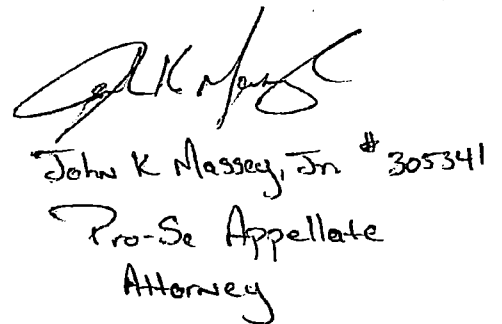 John K Massey
John K Massey, Jr. # 305341
Pro-Se Appellate
Attorney